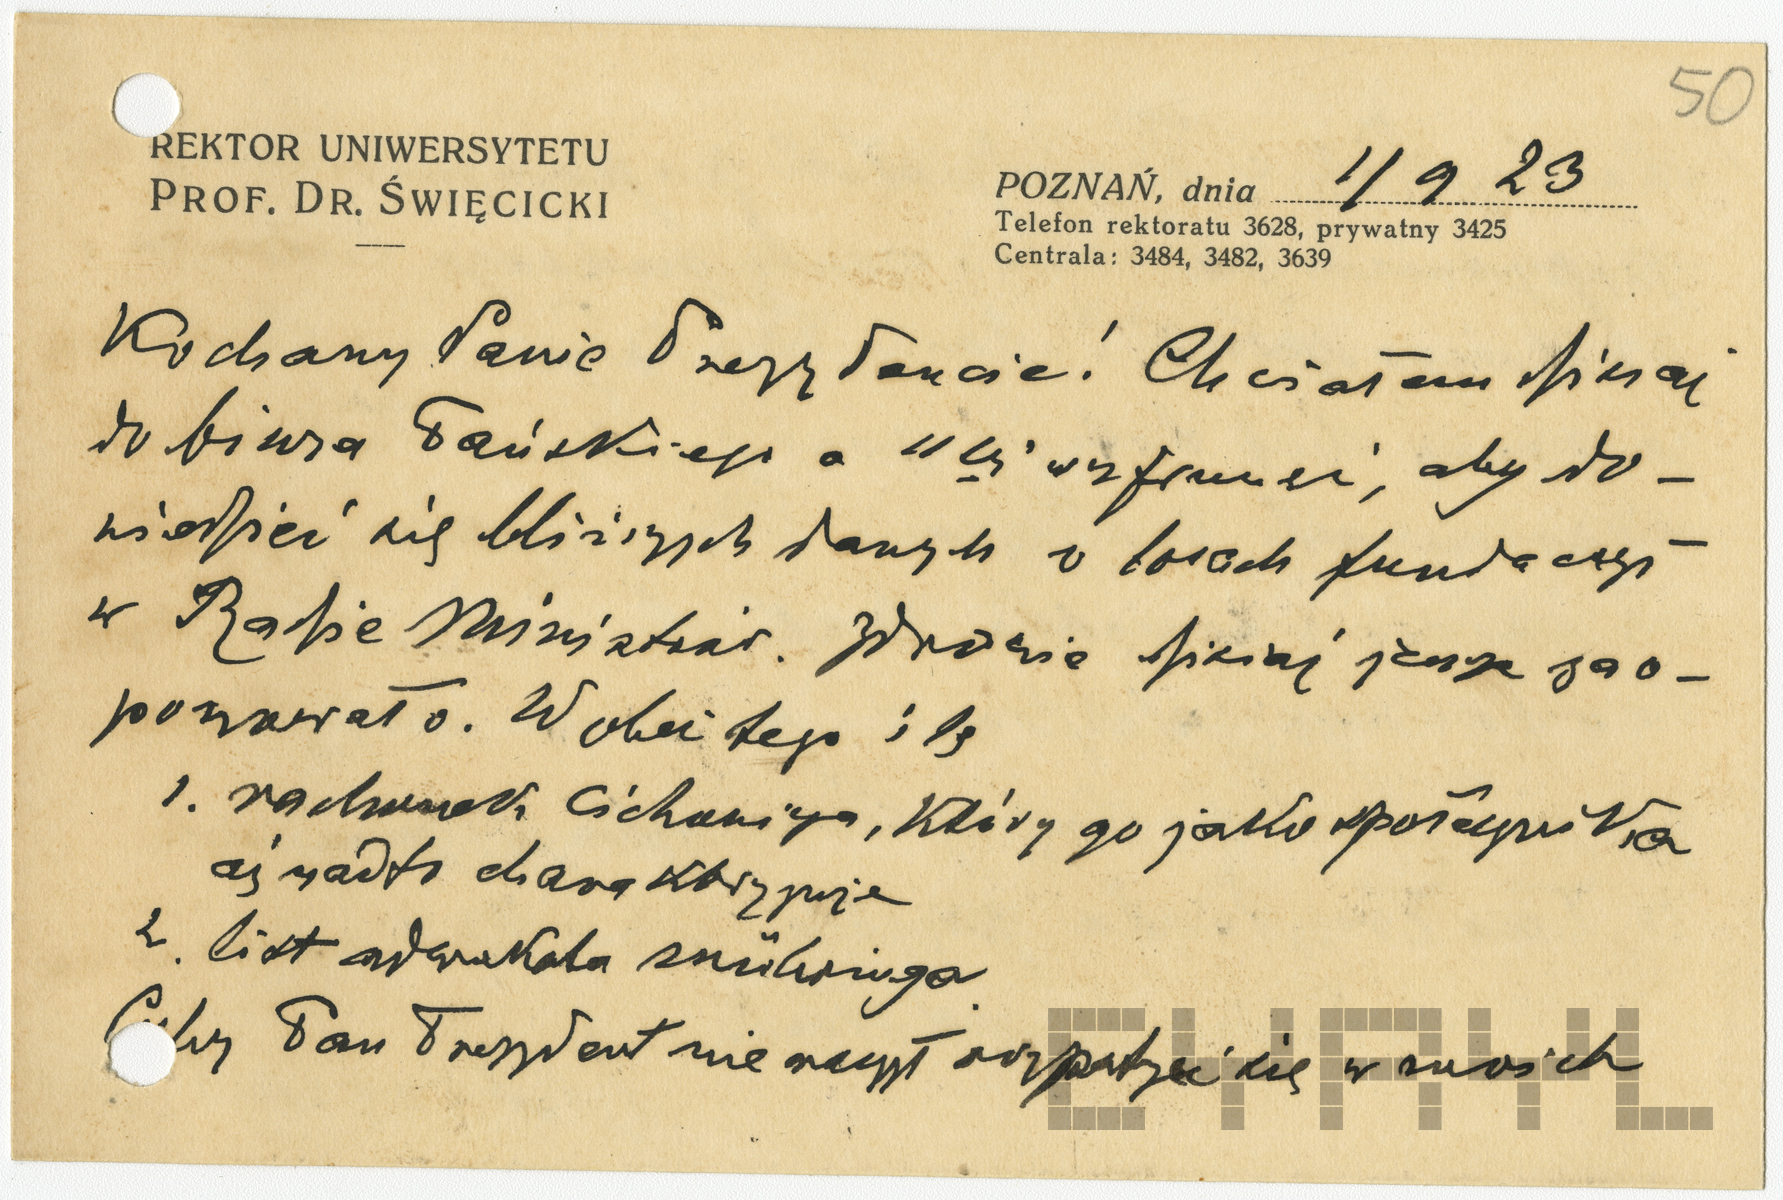 50
REKTOR UNIWERSYTETU
PROF. DR. ŚWIĘCICKI
POZNAŃ, dnia 1/9 23
Telefon rektoratu 3628, prywatny 3425
Centrala: 3484, 3482, 3639
Kochany Panie Prezydencie! Chciałem dzisiaj
do biura Pańskiego o 11 aby do-
wiedzieć się bliższych danych o losach fundacyi
w Radzie Ministrów. Zdrowie dzisiaj zao-
ponowało. Wobec tego ślę
1. rachunek Cichowicza, który go jako społecznika
aż nadto charakteryzuje
2. list adwokata Mühringa.
Czyby Pan Prezydent nie raczył rozpatrzeć się w moich
EHAHL